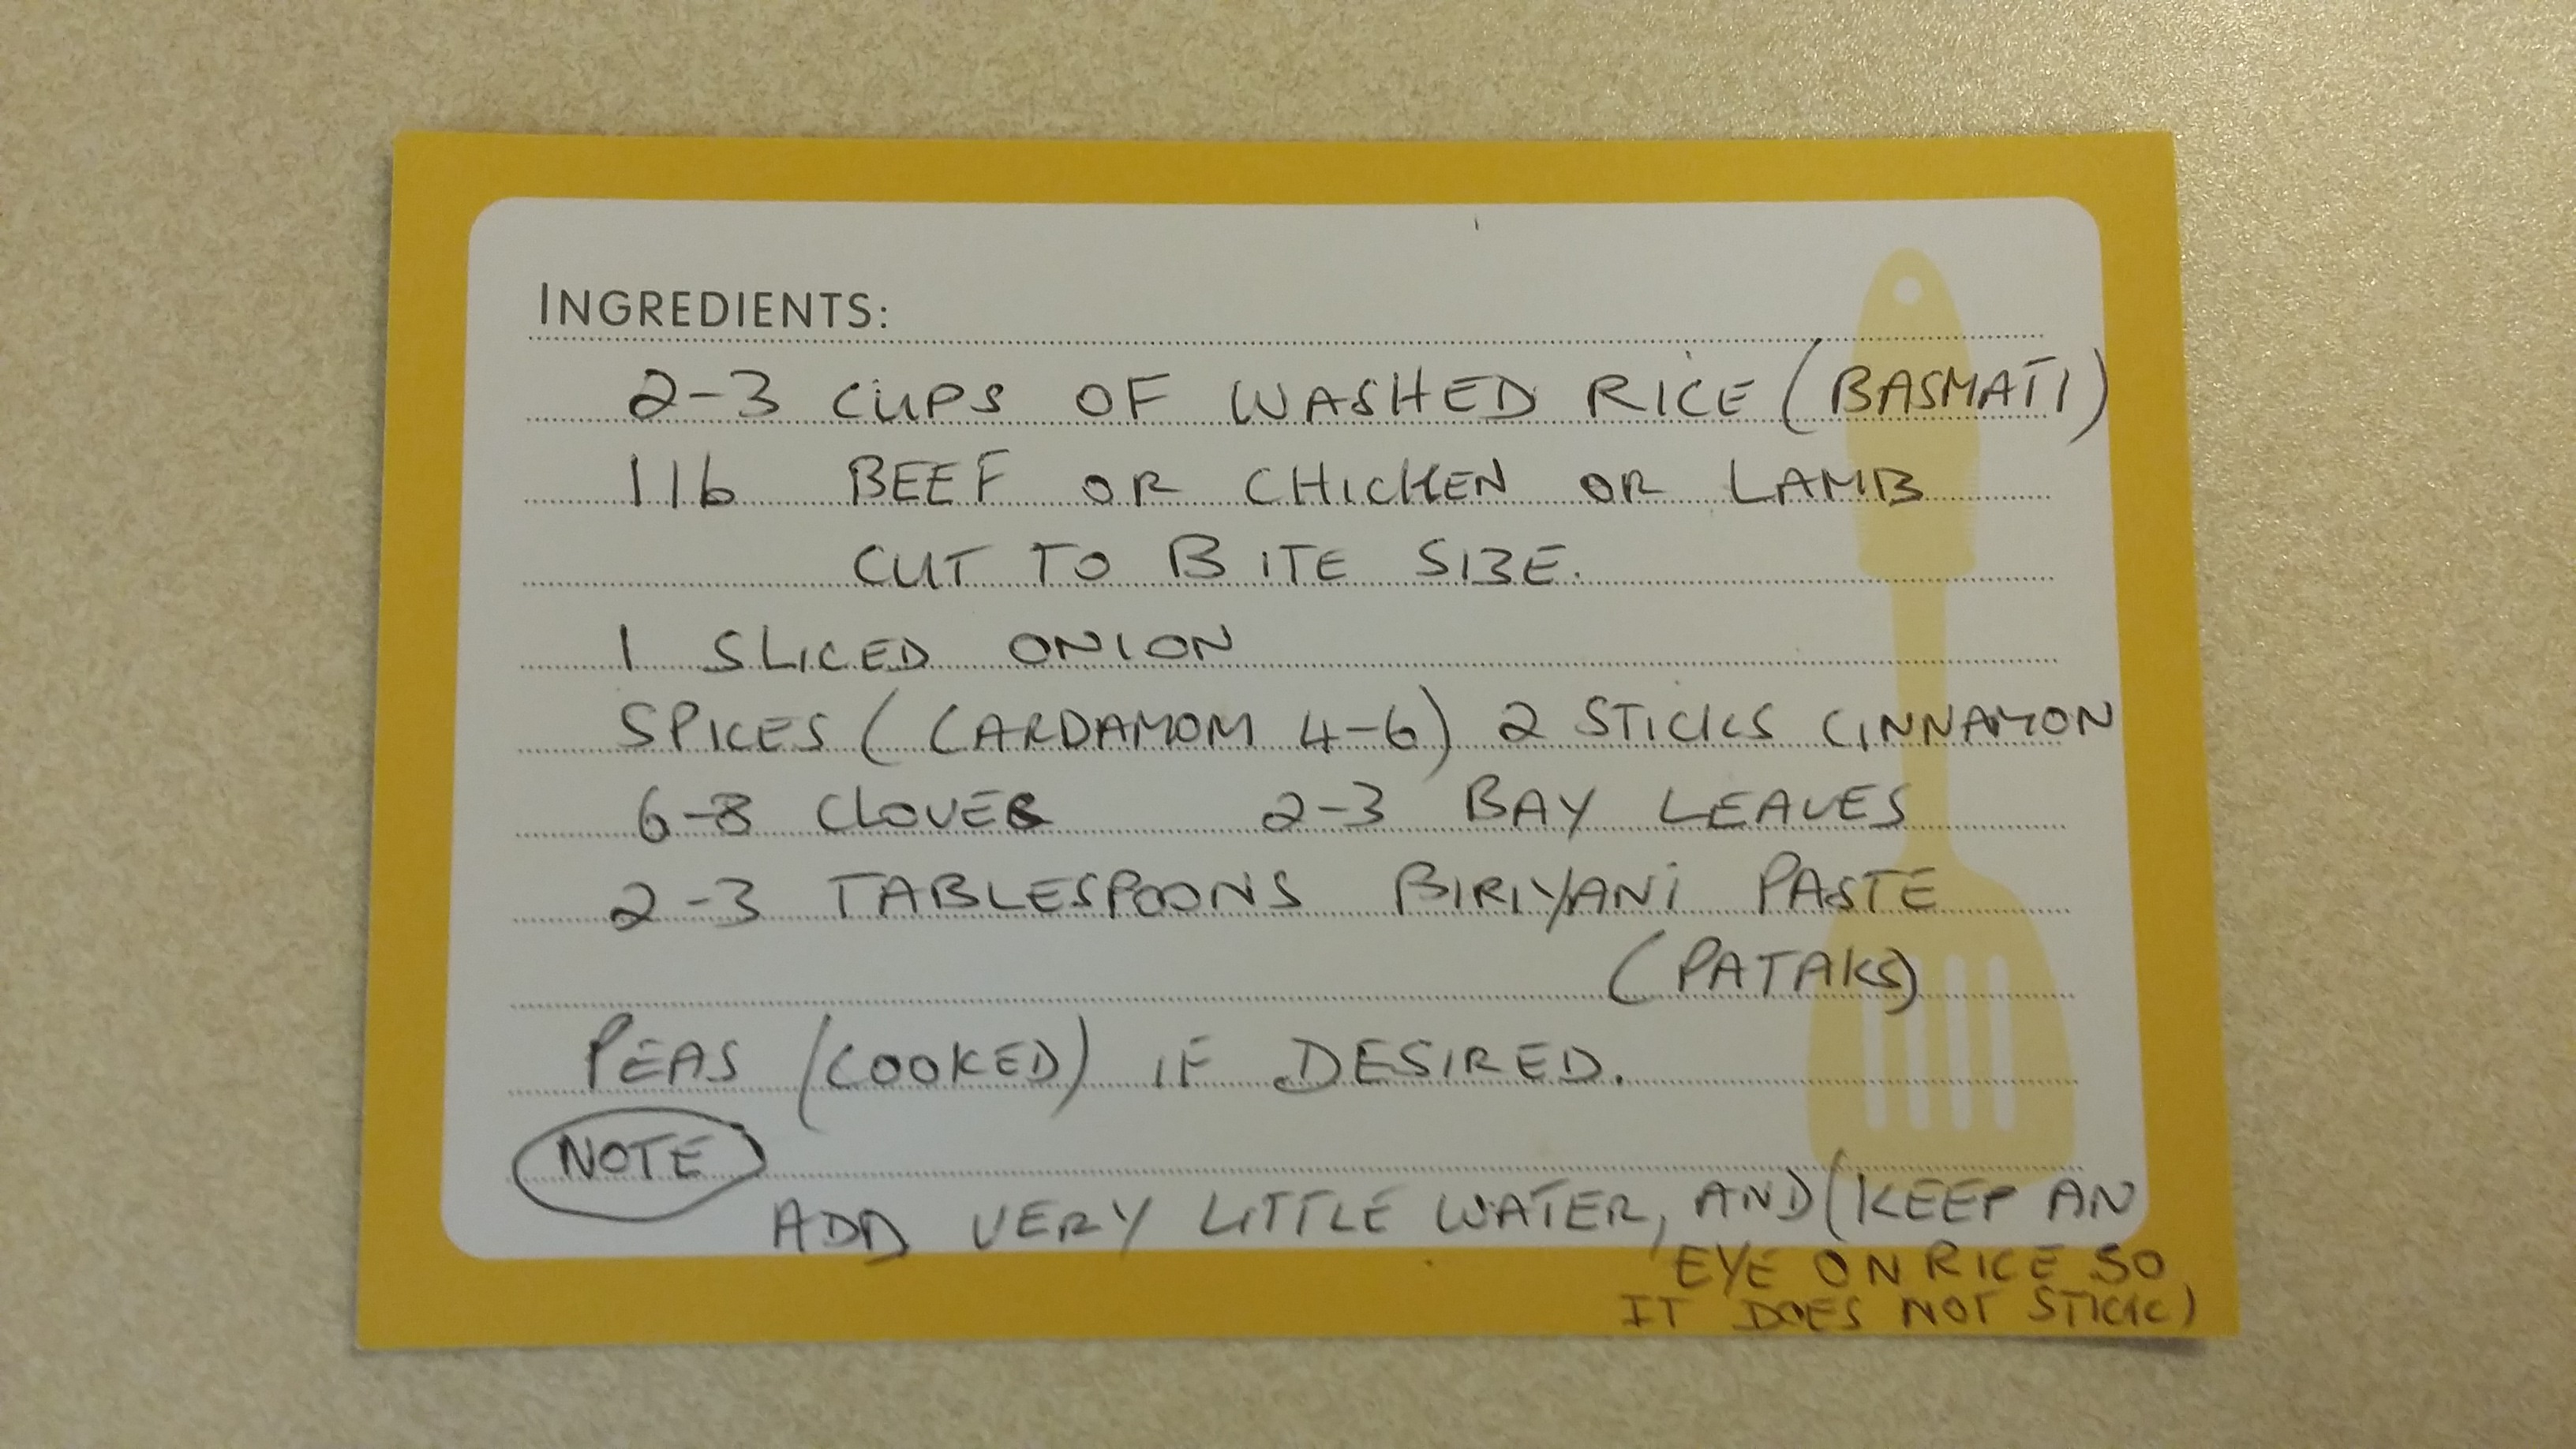 INGREDIENTS:
2-3 CUPS OF WASHED RICE (BASMATI)
1lb BEEF OR CHICKEN OR LAMB
CUT TO BITE SIZE.
1 SLICED ONION
SPICES (CARDAMOM 4-6) 2 STICKS CINNAMON
6-8 CLOVES 2-3 BAY LEAVES
2-3 TABLESPOONS BIRIYANI PASTE
(PATAKS)
PEAS (COOKED) IF DESIRED.
NOTE
ADD VERY LITTLE WATER, AND (KEEP AN
EYE ON RICE SO
IT DOES NOT STICK)